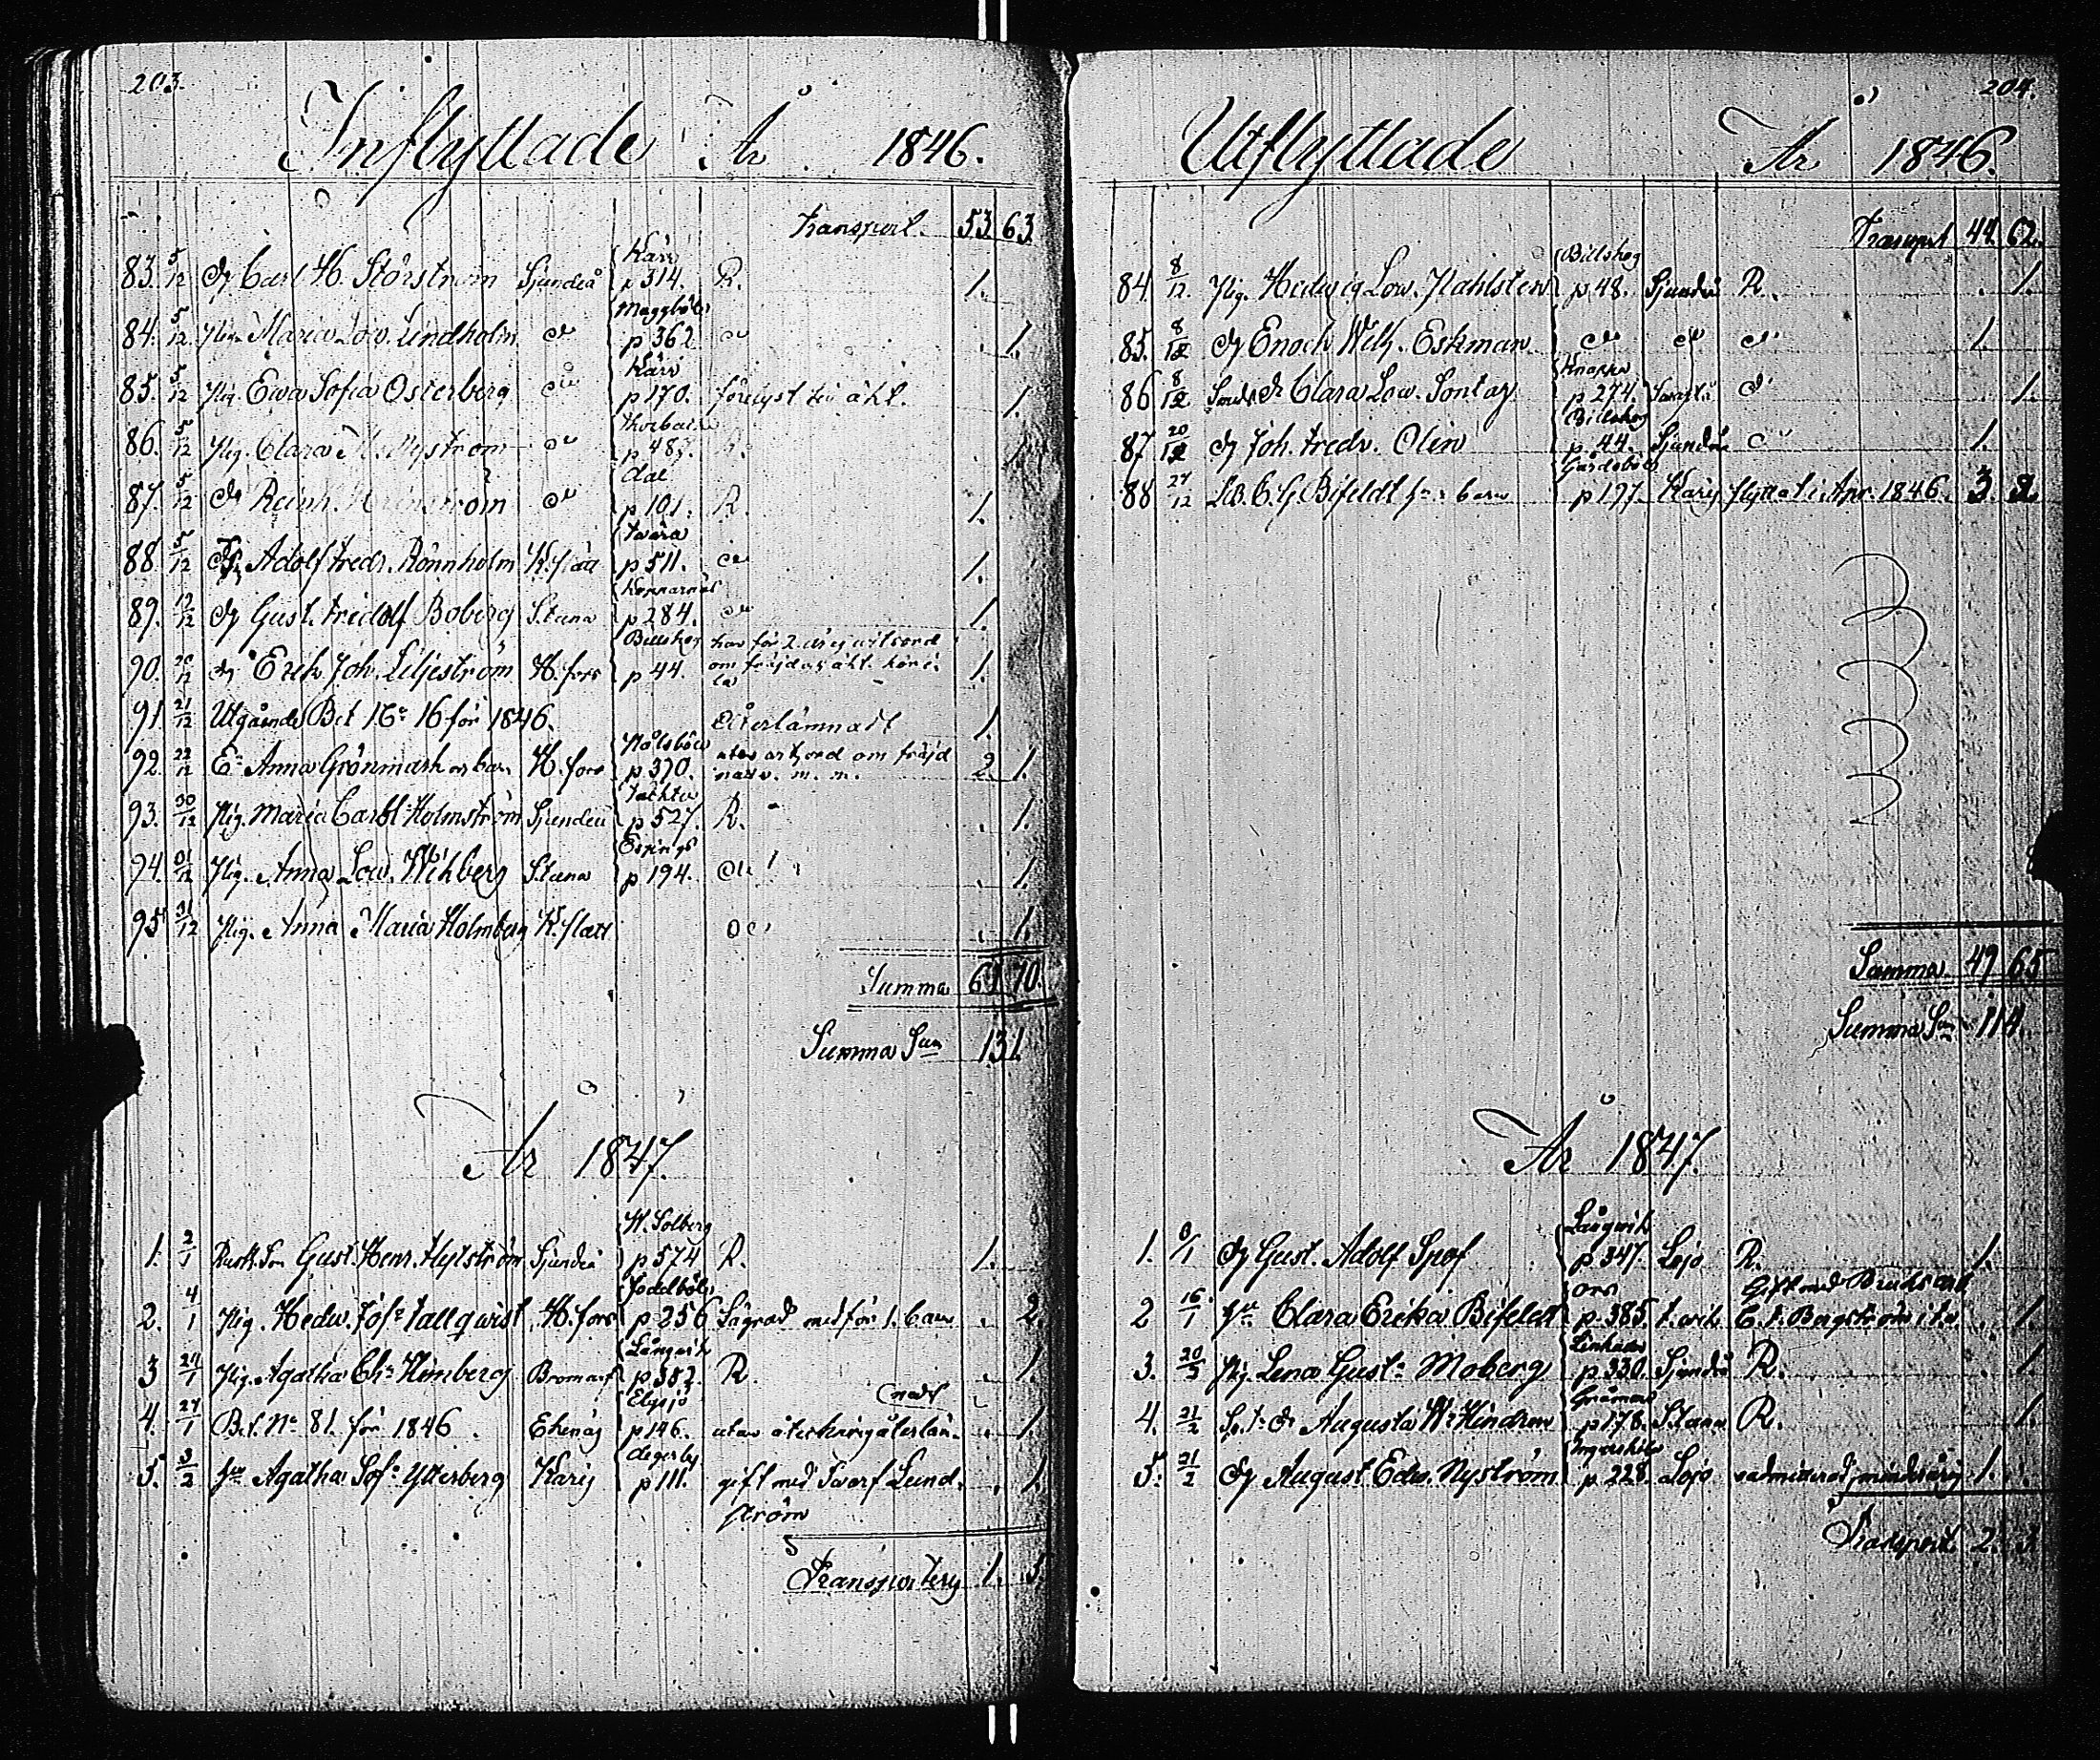 203.
Inflyttade År 1846.
Transport. 53 63
83. 5/12 Dg Carl H. Störström Sjundeå Kärr p 314. R. 1.
84. 5/12 Pig. Maria Lov. Lindholm do Maggböle p 362 do 1.
85. 5/12 Pig. Ewa Sofia Osterberg do Kärr p 170. förlyst till äkt. 1.
86. 5/12 Pig. Clara M. Nyström do p 487. 1.
87. 5/12 Dr Reinh. do Dal p 101. R. 1.
88. 5/12 Adolf Fredr. Rönnholm K.slätt p 511. do 1.
89. 19/12 Dg Gust. Fridolf Boberg S.tuna Kopparnäs p 284. do 1.
90. 20/12 Dg Erik Joh. Liljeström H.fors Billskog p 44. har för 2. år ej witsord
om fräjd och äkt. 1.
91. 21/12 Utgående Bet No 16 för 1846. återlämnadt 1.
92. 22/12 Ea Anna Grönmark och barn H.fors p 370. utan om fräjd
nattv. m. m. 2. 1.
93. 30/12 Pig. Maria Carol. Holmström Sjundeå Täckter p 527. R. 1.
94. 31/12 Pig. Anna Lov. Wikberg S.tuna Espings p 194. do 1.
95 31/12 Pig. Anna Maria Holmberg K.slätt do 1.
Summa 61 70.
Summa Sum 131.
År 1847.
1. 2/1 Rusth. Son Gust. Henr. Hylström Sjundeå W. Solberg p 574 R. 1.
2. 4/1 Pig. Hedv. Jos. Tallqvist H.fors Joddböle p 256 Sägnad medför 1. barn 2.
3 24/1 Pig. Agatha Ch. Himberg Bromarf Långvik p 382. R. 1.
4. 24/1 Bet. No 81. för 1846. Ekenäs Elgsjö p 146. utan återlän-
nadt 1.
5. 3/2 Agatha Sof. Ytterberg Karis Degerby p 111. gift med Lund-
ström 1.
Transporteras 1. 5.
204.
Utflyttade År 1846.
Transport 44. 62.
84. 8/12. Pig. Hedvig Lov. Dahlsten Billskog p 48. Sjundeå R. 1.
85. 8/12 Dg Enoch Wilh. Eskman do do do 1.
86 8/12 Clara Lov. Sontag Knapps p 274. do 1.
87 20/12 Dg Joh. Fredr. Olin Billskog p 44. Sjundeå do 1.
88 27/12 C. G. Bifeldt barn Gårdsböle p 197. Karis flyttat i Apr. 1846. 3. 2.
Summa 49 65
Summa Sum 114.
År 1847.
1. 8/1 Dg Gust. Adolf Spof Långvik p 347. Lojo R. 1.
2 16/1 Clara Erika Bifeldt Ors p 385. Gift med
C. F. Bergström 1.
3. 20/2 Pig. Lena Gust. Moberg p 330. Sjundeå R. 1.
4. 21/2 Augusta W. Hindson p 178. S.tuna R. 1.
5. 21/2 Dg August Edv. Nyström Ingarskila p 228. Lojo oadmitterad, minderårig 1.
Transport. 2. 3.